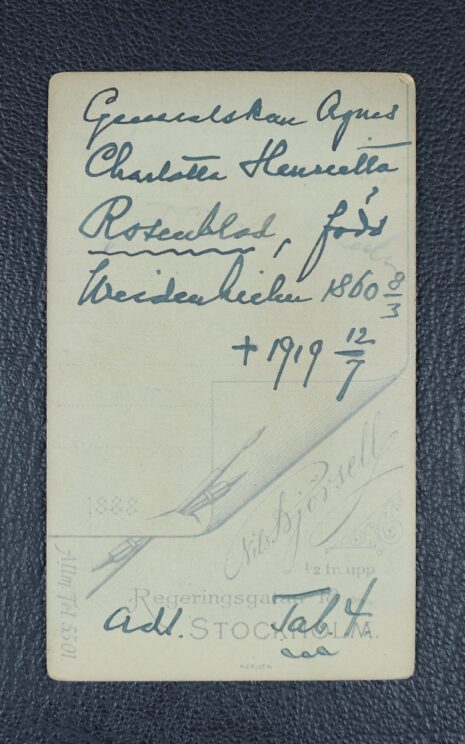 Generalskan Agnes
Charlotta Henrietta
Rosenblad, född
Weidenhielm 1860 8/3
+ 1919 12/7
1888
Nils Björsell
½ tr. upp
Regeringsgatan
STOCKHOLM.
Allm. Tel. 5501
adl. Tab. 4